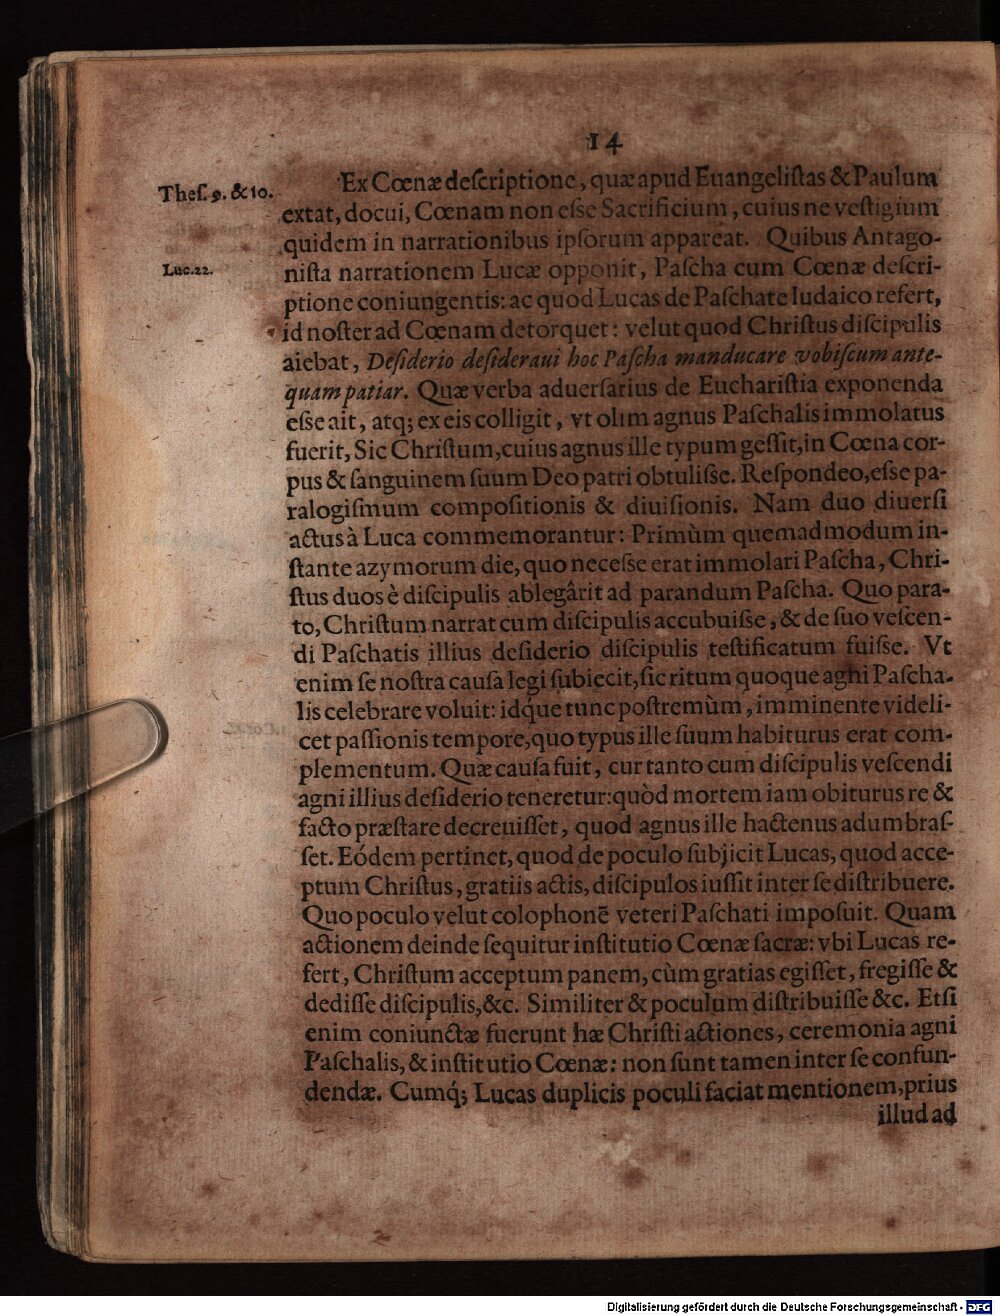 14
Thes. 9. & 10.
Ex Cœnæ descriptione, quæ apud Euangelistas & Paulum
extat, docui, Cœnam non esse Sacrificium, cuius ne vestigium
quidem in narrationibus ipsorum appareat. Quibus Antago-
Luc. 22.
nista narrationem Lucæ opponit, Pascha cum Cœnæ descri-
ptione coniungentis: ac quod Lucas de Paschate Iudaico refert,
id noster ad Cœnam detorquet: velut quod Christus discipulis
aiebat, Desiderio desideraui hoc Pascha manducare vobiscum ante-
quam patiar. Quæ verba aduersarius de Eucharistia exponenda
esse ait, atq; ex eis colligit, vt olim agnus Paschalis immolatus
fuerit, Sic Christum, cuius agnus ille typum gessit, in Cœna cor-
pus & sanguinem suum Deo patri obtulisse. Respondeo, esse pa-
ralogismum compositionis & diuisionis. Nam duo diuersi
actus à Luca commemorantur: Primùm quemadmodum in-
stante azymorum die, quo necesse erat immolari Pascha, Chri-
stus duos è discipulis ablegârit ad parandum Pascha. Quo para-
to, Christum narrat cum discipulis accubuisse, & de suo vescen-
di Paschatis illius desiderio discipulis testificatum fuisse. Vt
enim se nostra causa legi subiecit, sic ritum quoque agni Pascha-
lis celebrare voluit: idq́ue tunc postremùm, imminente videli-
cet passionis tempore, quo typus ille suum habiturus erat com-
plementum. Quæ causa fuit, cur tanto cum discipulis vescendi
agni illius desiderio teneretur: quòd mortem iam obiturus re &
facto præstare decreuisset, quod agnus ille hactenus adumbras-
set. Eódem pertinet, quod de poculo subjicit Lucas, quod acce-
ptum Christus, gratiis actis, discipulos iussit inter se distribuere.
Quo poculo velut colophonē veteri Paschati imposuit. Quam
actionem deinde sequitur institutio Cœnæ sacræ: vbi Lucas re-
fert, Christum acceptum panem, cùm gratias egisset, fregisse &
dedisse discipulis, &c. Similiter & poculum distribuisse &c. Etsi
enim coniunctæ fuerunt hæ Christi actiones, ceremonia agni
Paschalis, & institutio Cœnæ: non sunt tamen inter se confun-
dendæ. Cumq́; Lucas duplicis poculi faciat mentionem, prius
illud ad
Digitalisierung gefördert durch die Deutsche Forschungsgemeinschaft - DFG